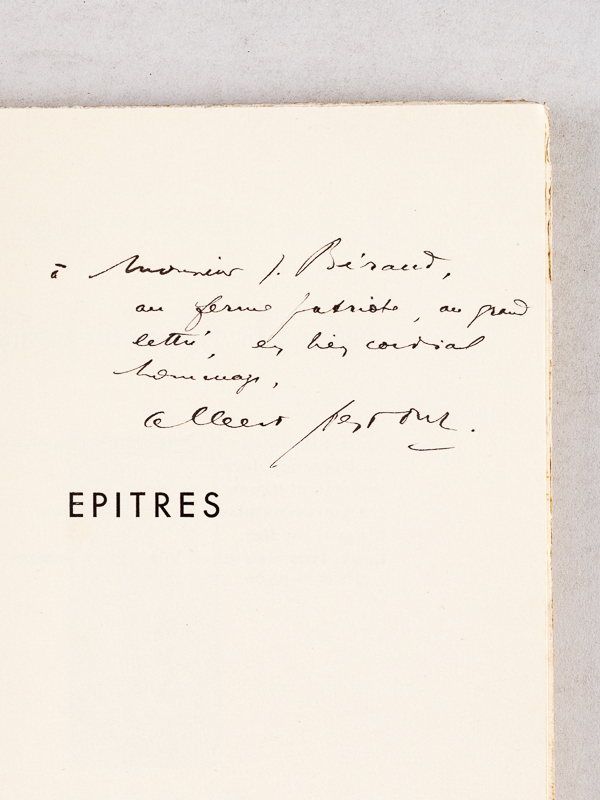 à Monsieur J. Béraud,
au ferme patriote, au grand
lettré, en bien cordial
hommage,
Albert
EPITRES